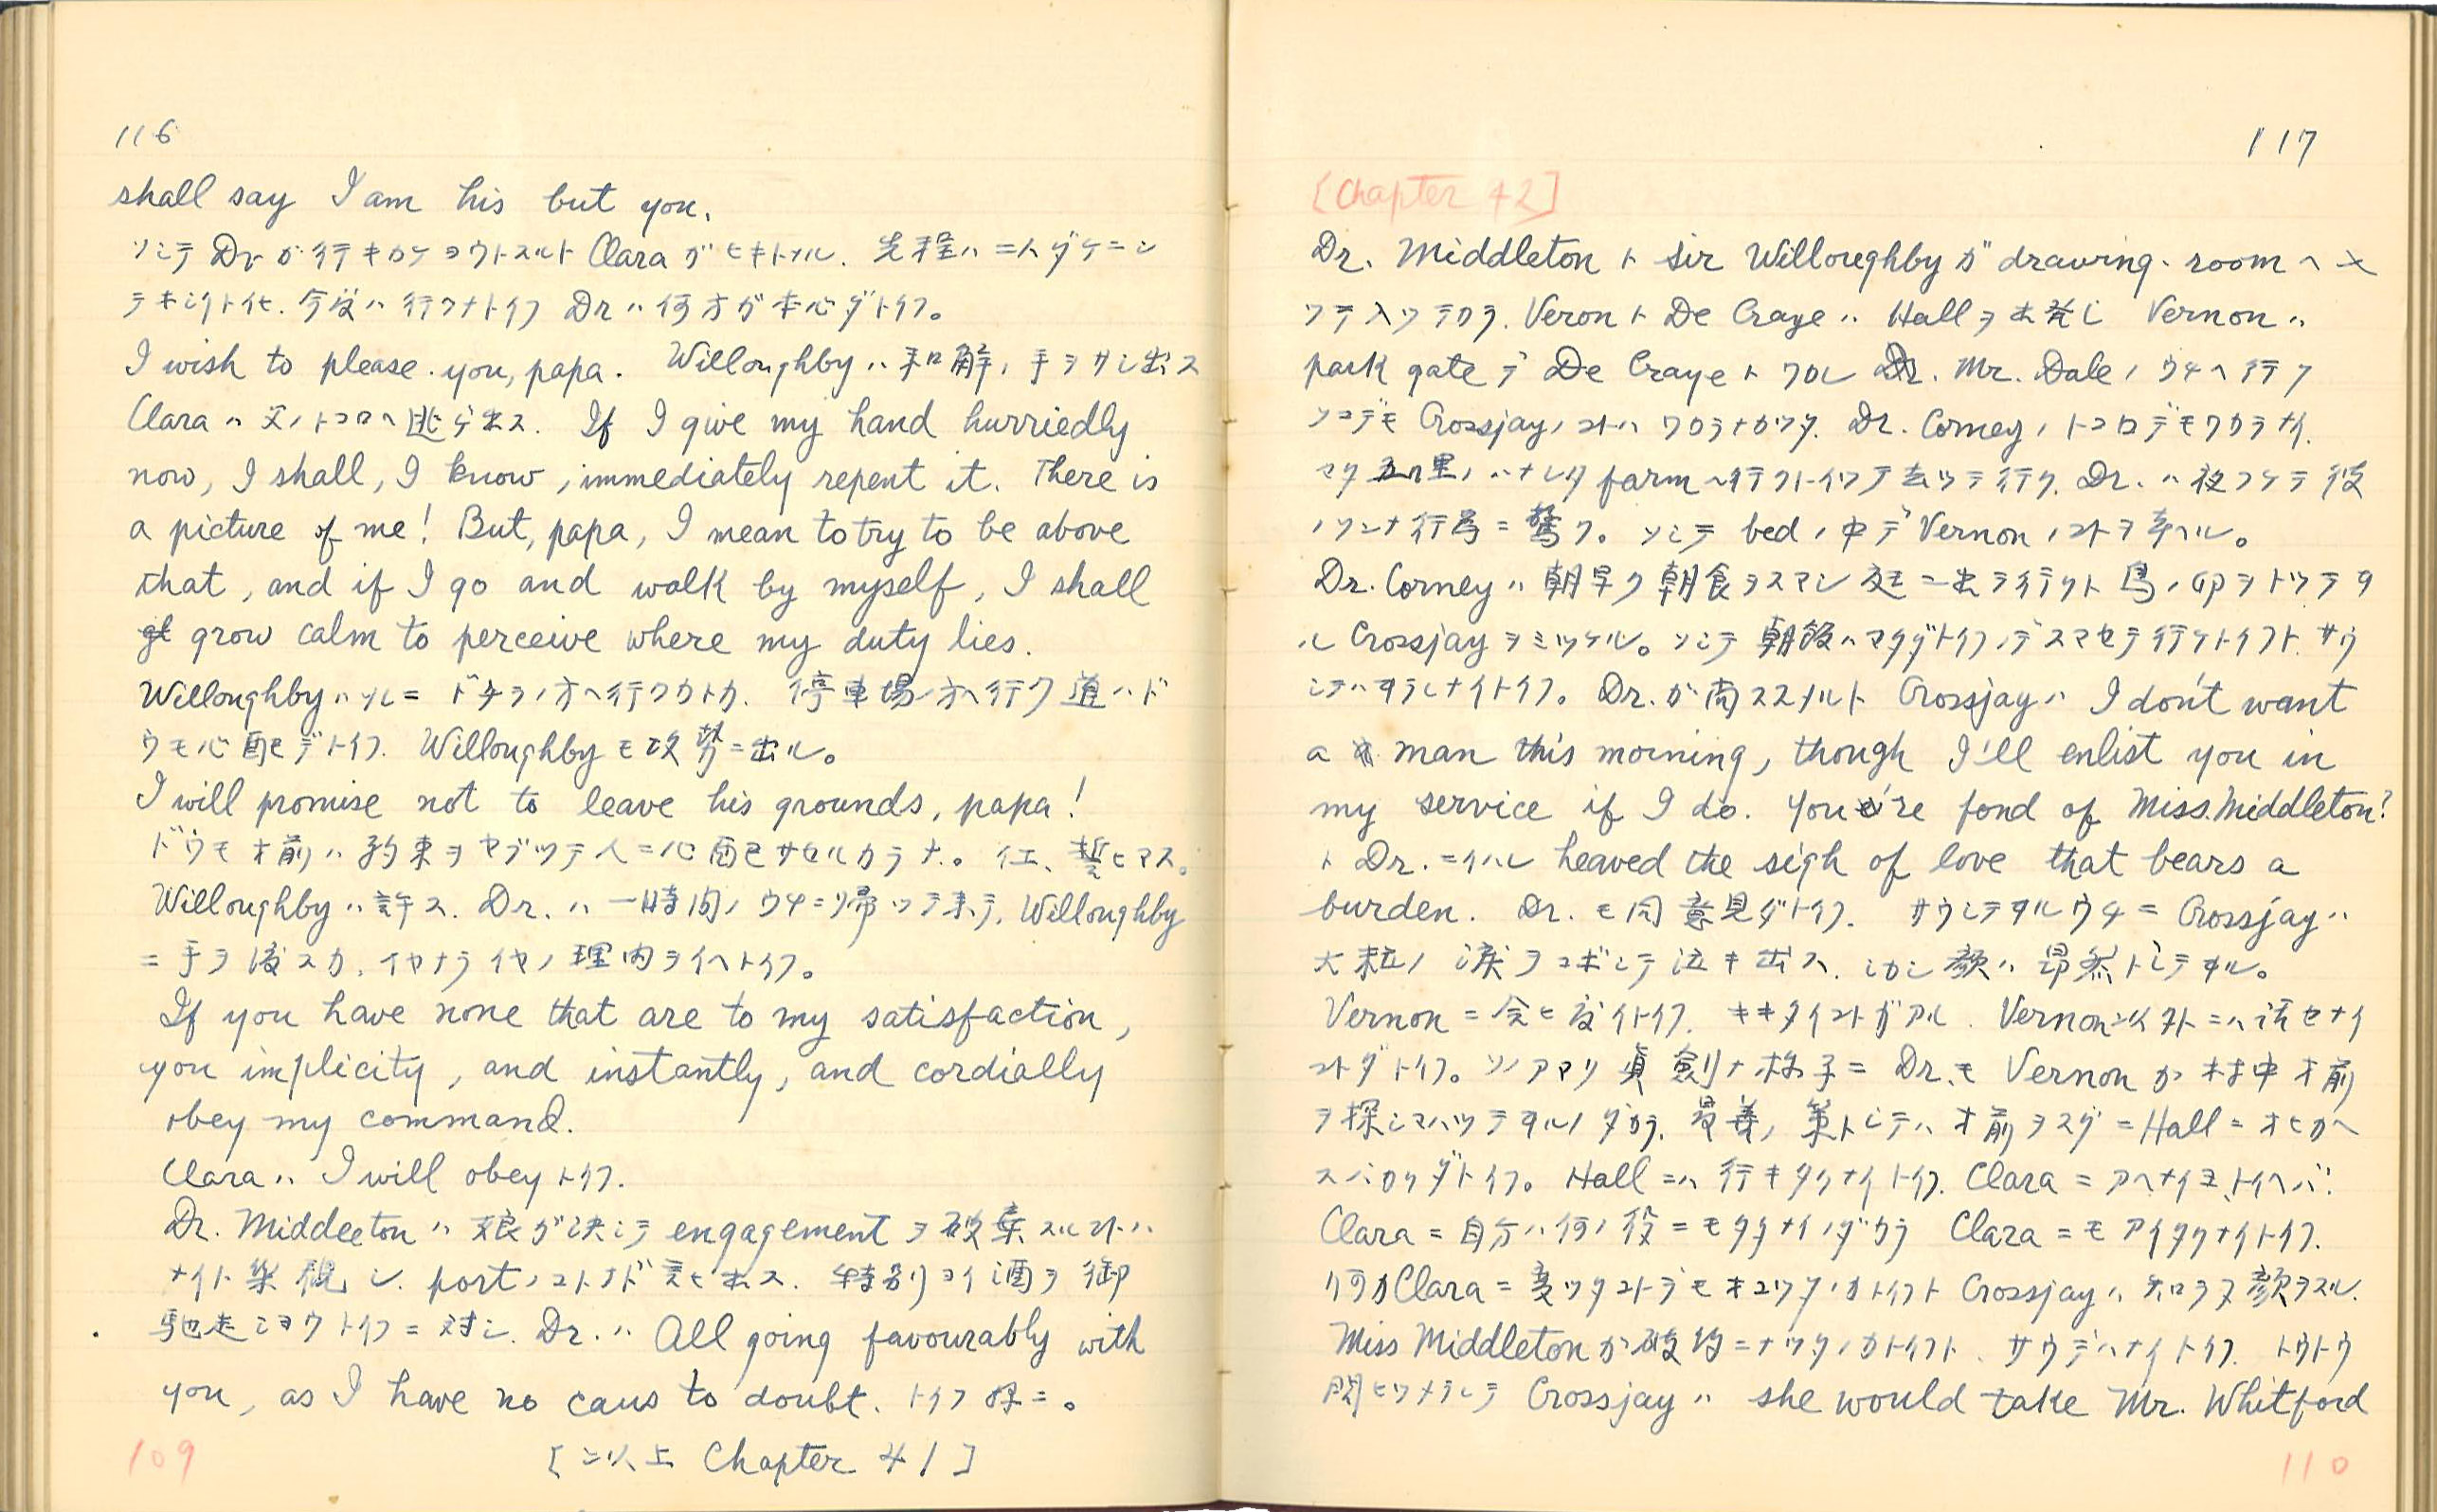 116
shall say I am his but you.
ソシテ Dr ガ行キカケヨウトスルト Clara ガヒキトメル. 先程ハ二人ダケニシ
テキ 今度ハ行クナトイフ Dr ハ何方ガ本心ダトイフ。
I wish to please you, papa. Willoughby ハ和解ノ手ヲサシ出ス
Clara ハ父ノトコロヘ逃ゲ出ス. If I give my hand hurriedly
now, I shall, I know, immediately repent it. There is
a picture of me! But, papa, I mean to try to be above
that, and if I go and walk by myself, I shall
grow calm to perceive where my duty lies.
Willoughby ハ ドチラノ方ヘ行クカトカ. 停車場ノ方ヘ行ク道ハド
ウモ心配デトイフ. Willoughby モ攻勢ニ出ル。
I will promise not to leave his grounds, papa!
ドウモオ前ハ約束ヲヤブツテ人ニ心配サセルカラナ。 誓ヒマス。
Willoughby ハ許ス. Dr. ハ一時間ノウチニ帰ツテ来テ, Willoughby
ニ手ヲ渡スカ, イヤナライヤノ理由ヲイヘトイフ。
If you have none that are to my satisfaction,
you implicity, and instantly, and cordially
obey my command.
Clara ハ I will obey トイフ.
Dr. Middleeton ハ娘ガ決シテ engagement ヲ破棄スルコトハ
ナイト楽観シ. port ノコトナド云ヒ出ス. 特別ヨイ酒ヲ御
馳走シヨウトイフニ対シ. Dr. ハ All going favourably with
you, as I have no caus to doubt. トイフ
[以上 Chapter 41]
109
117
[Chapter 42]
Dr. Middleton ト Sir Willoughby ガ drawing-room ヘ
ツテ入ツテカラ. Veron ト De Craye ハ Hall ヲ出発シ Vernon ハ
park gate デ De Craye ト ワカレ Mr. Dale ノウチヘ行ク
ソコデモ Crossjay ノコトハワカラナカツタ. Dr. Corney ノトコロデモワカラナイ.
マタ五哩ノハナレタ farm ヘ行クトイツテ去ツテ行ク. Dr. ハ夜フケテ彼
ノソンナ行為ニ驚ク。ソシテ bed ノ中デ Vernon ノコトヲ考ヘル。
Dr. Corney ハ朝早ク朝食ヲスマシ庭ニ出テ行クト鳥ノ卵ヲトツテヰ
ル Crossjay ヲミツケル。ソシテ朝飯ハマダダトイフノデスマセテ行ケトイフト サウ
シテハヰラレナイトイフ。Dr. ガ尚ススメルト Crossjay ハ I don't want
a man this morning, though I'll enlist you in
my service if I do. You're fond of Miss. Middleton?
ト Dr. ニイハレ heaved the sigh of love that bears a
burden. Dr. モ同意見ダトイフ. サウシテヰルウチニ Crossjay ハ
大粒ノ涙ヲコボシテ泣キ出ス. シカシ顔ハ昂然トシテヰル。
Vernon ニ会ヒ度イトイフ. キキタイコトガアル. Vernon 以外ニハ話セナイ
コトダトイフ。ソノアマリ真剣ナ様子ニ Dr. モ Vernon ガ村中オ前
ヲ探シマハツテヰルノダカラ, 最善ノ策トシテハオ前ヲスグニ Hall ニオヒカヘ
スバカリダトイフ。Hall ニハ行キタクナイトイフ. Clara ニアヘナイヨ,トイヘバ.
Clara ニ自分ハ何ノ役ニモタタナイノダカラ Clara ニモアイタクナイトイフ.
何カ Clara ニ変ツタコトデモオコツタノカトイフト Crossjay ハ知ラヌ顔ヲスル.
Miss Middleton ガ破約ニナツタノカトイフト, サウデハナイトイフ. トウトウ
問ヒツメラレテ Crossjay ハ she would take Mr. Whitford
110